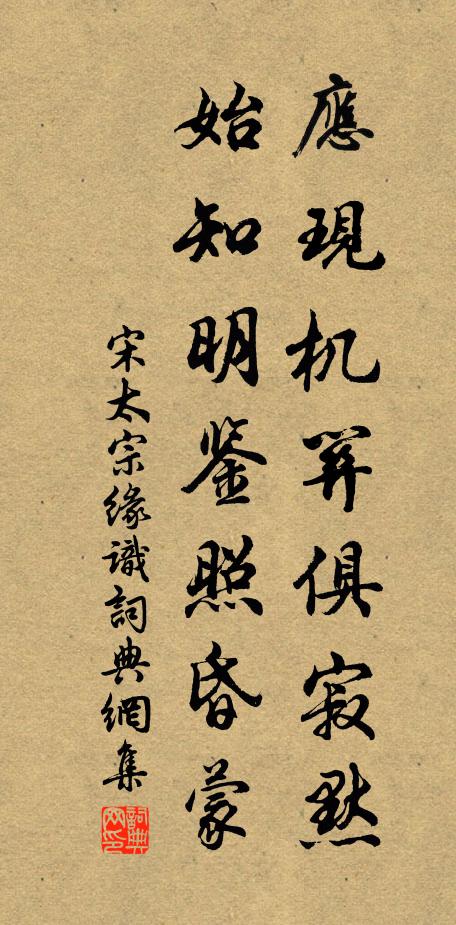 應現机筭俱寂默
始知明鉴照昏蒙
宋太宗緣識詞典網集
詞典网印